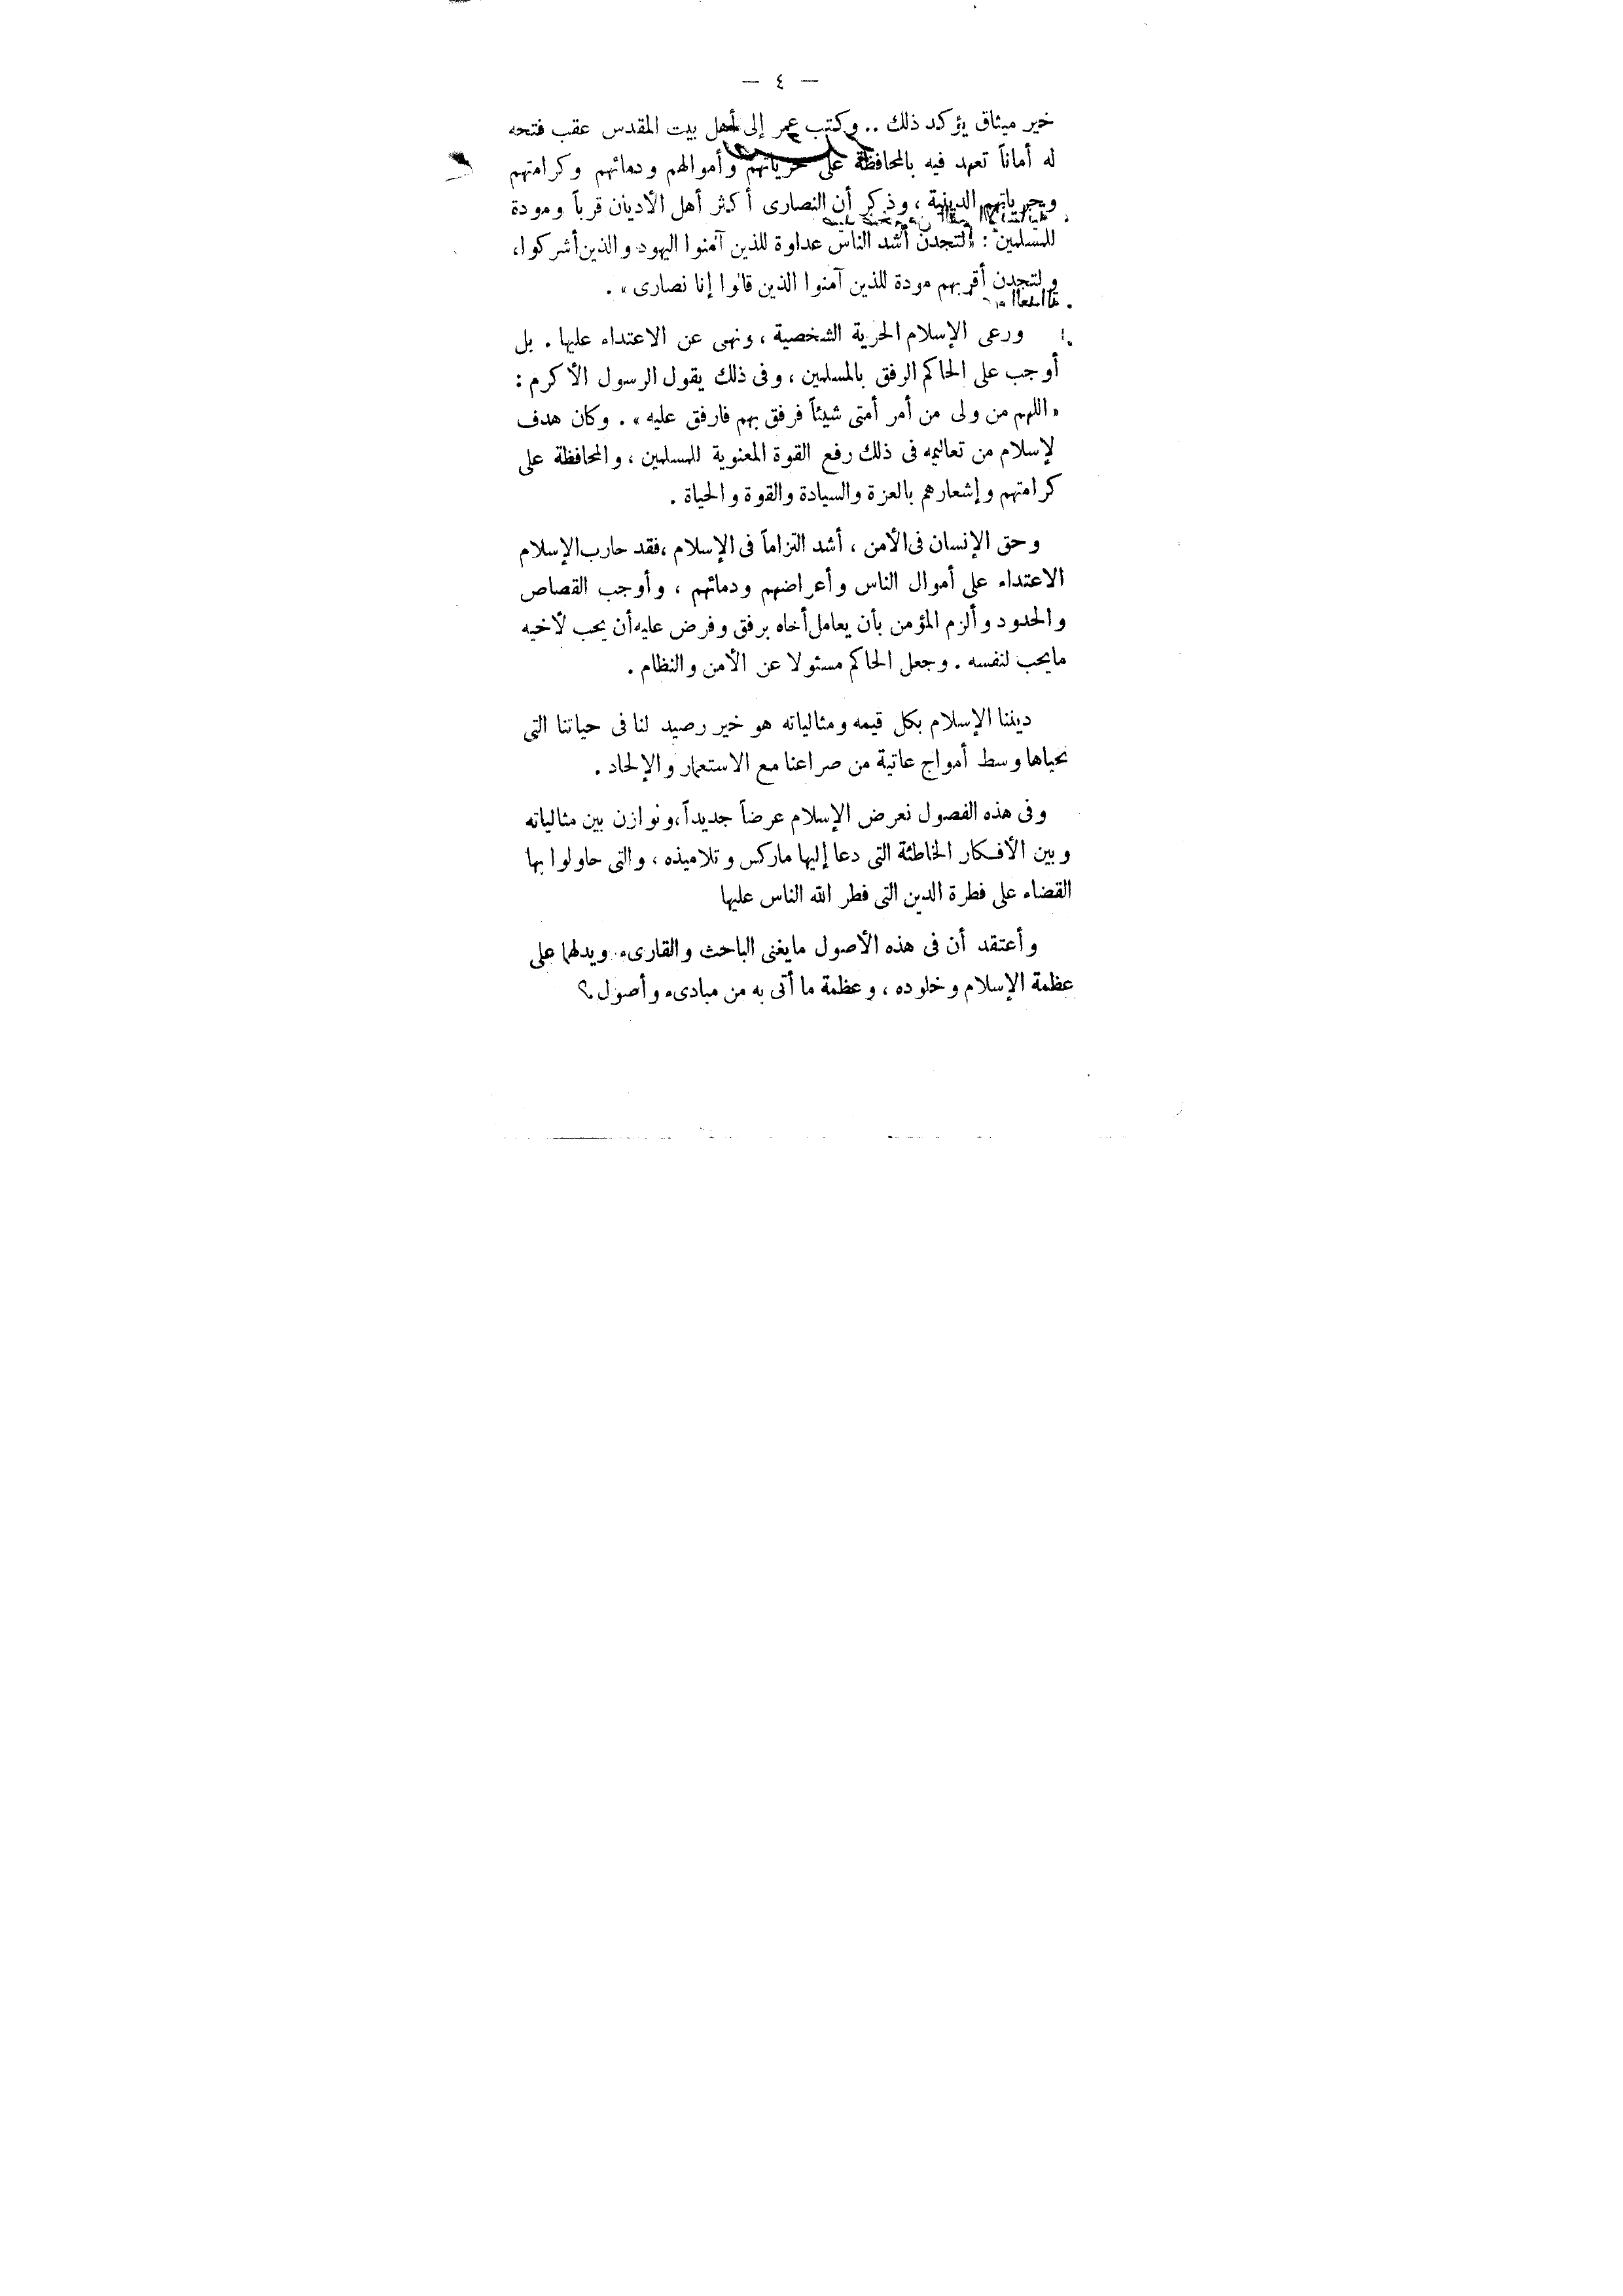 — ٤ —
خير ميثاق يؤكد ذلك .. وكتب عمر إلى أهل بيت المقدس عقب فتحه
له أماناً تعهد فيه بالمحافظة على حرياتهم وأموالهم ودمائهم وكرامتهم
وحرياتهم الدينية ، وذكر أن النصارى أكثر أهل الأديان قرباً ومودة
للمسلمين : «لتجدن أشد الناس عداوة للذين آمنوا اليهود والذين أشركوا،
ولتجدن أقربهم مودة للذين آمنوا الذين قالوا إنا نصارى» .
ورعى الإسلام الحرية الشخصية ، ونهى عن الاعتداء عليها . بل
أوجب على الحاكم الرفق بالمسلمين ، وفى ذلك يقول الرسول الأكرم :
«اللهم من ولى من أمر أمتى شيئاً فرفق بهم فارفق عليه» . وكان هدف
لإسلام من تعاليمه فى ذلك رفع القوة المعنوية للمسلمين ، والمحافظة على
كرامتهم وإشعارهم بالعزة والسيادة والقوة والحياة .
وحق الإنسان فى الأمن ، أشد التزاماً فى الإسلام ،فقد حارب الإسلام
الاعتداء على أموال الناس وأعراضهم ودمائهم ، وأوجب القصاص
والحدود وألزم المؤمن بأن يعامل أخاه برفق وفرض عليه أن يحب لأخيه
مايحب لنفسه . وجعل الحاكم مسئولا عن الأمن والنظام .
ديننا الإسلام بكل قيمه ومثالياته هو خير رصيد لنا فى حياتنا التى
نحياها وسط أمواج عاتية من صراعنا مع الاستعمار والإلحاد .
وفى هذه الفصول نعرض الإسلام عرضاً جديداً،ونوازن بين مثالياته
وبين الأفكار الخاطئة التى دعا إليها ماركس وتلاميذه ، والتى حاولوا بها
القضاء على فطرة الدين التى فطر الله الناس عليها
وأعتقد أن فى هذه الأصول مايغنى الباحث والقارىء ويدلهما على
عظمة الإسلام وخلوده ، وعظمة ما أتى به من مبادىء وأصول ؟